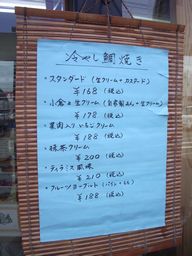 冷やし鯛焼き
・スタンダード (生クリーム+カスタード)
￥168 (税込)
・小倉&生クリーム (自家製あん+生クリーム)
￥178 (税込)
・果肉入りいちごクリーム
￥188 (税込)
・抹茶クリーム
￥200 (税込)
・ティラミス風味
￥210 (税込)
・フルーツヨーグルト
￥188 (税込)